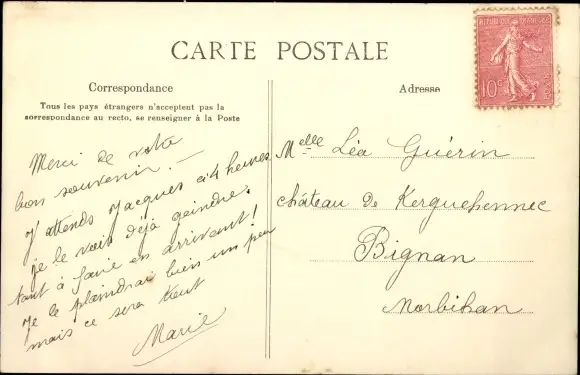 CARTE POSTALE
Correspondance
Tous les pays étrangers n'acceptent pas la
correspondance au recto, se renseigner à la Poste
Merci de votre
bon souvenir. —
J'attends Jacques à 4 heures
je le vois déjà geindre.
tant à faire en arrivant!
Je le plaindrai bien un peu
mais ce sera tout
Marie
Adresse
REPUBLIQUE FRANÇAISE
10c
Melle Léa Guérin
château de Kerguehennec
Bignan
Morbihan